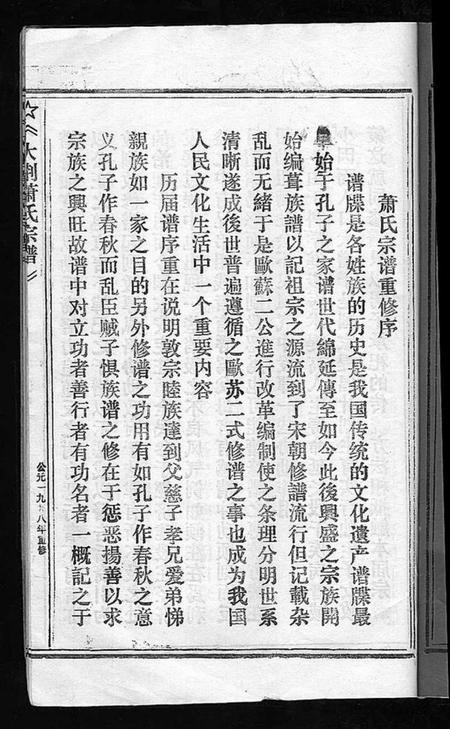 萧氏宗谱重修序
谱牒是各姓族的历史是我国传统的文化遗产谱牒最
早始于孔子之家谱世代綿延傳至如今此後興盛之宗族開
始编葺族谱以記祖宗之源流到了宋朝修譜流行但记載杂
乱而无緒于是歐蘇二公進行改革编制使之条理分明世系
清晰遂成後世普遍遵循之歐苏二式修谱之事也成为我国
人民文化生活中一个重要内容
历届谱序重在说明敦宗睦族達到父慈子孝兄爱弟悌
親族如一家之目的另外修谱之功用有如孔子作春秋之意
义孔子作春秋而乱臣贼子惧族谱之修在于惩恶揚善以求
宗族之興旺故谱中对立功者善行者有功名者一概記之于
☆《大荆萧氏宗譜》
公元一九九八年重修